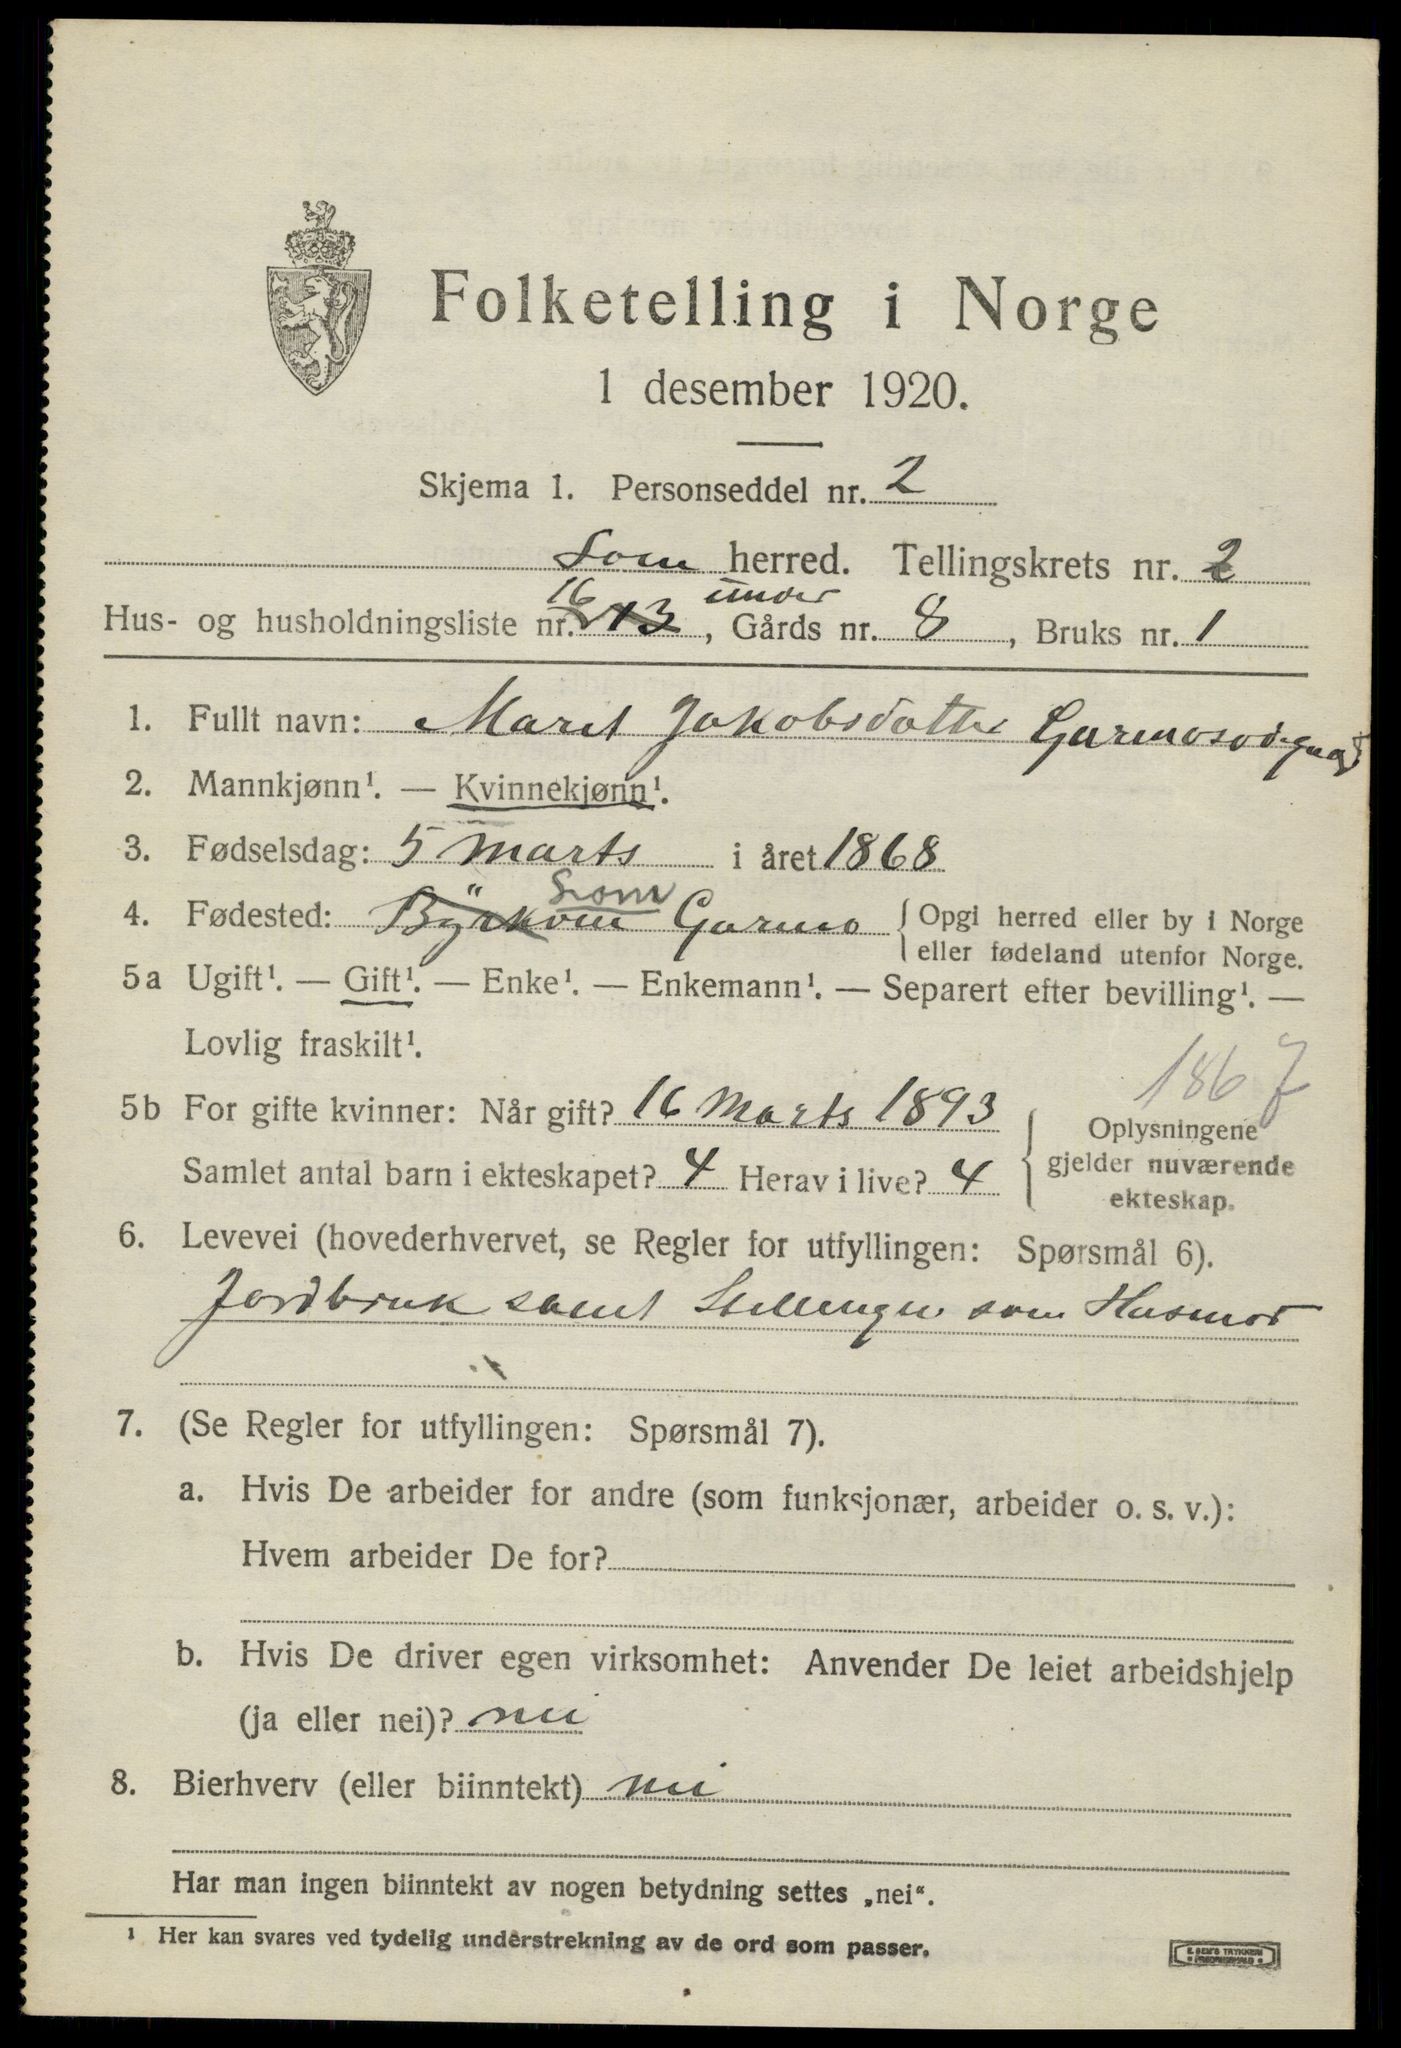 Folketelling i Norge
1 desember 1920.
Skjema 1. Personseddel nr. 2
Lom herred. Tellingskrets nr. 2
16 under
Hus- og husholdningsliste nr. 13, Gårds nr. 8, Bruks nr. 1
1. Fullt navn: Marit Jakobsdatter
2. Mannkjønn¹. — Kvinnekjønn¹.
3. Fødselsdag: 5 Marts i året 1868
Lom
4. Fødested: Garmo { Opgi herred eller by i Norge
eller fødeland utenfor Norge.
5a Ugift¹. — Gift¹. — Enke¹. — Enkemann¹. — Separert efter bevilling¹. —
Lovlig fraskilt¹.
1867
5b For gifte kvinner: Når gift? 16 Marts 1893
Samlet antal barn i ekteskapet? 4 Herav i live? 4
Oplysningene
gjelder nuværende
ekteskap.
6. Levevei (hovederhvervet, se Regler for utfyllingen: Spørsmål 6).
Jordbruk samt Stellingen som Husmor
7. (Se Regler for utfyllingen: Spørsmål 7).
a. Hvis De arbeider for andre (som funksjonær, arbeider o. s. v.):
Hvem arbeider De for?
b. Hvis De driver egen virksomhet: Anvender De leiet arbeidshjelp
(ja eller nei)? nei
8. Bierhverv (eller biinntekt) nei
Har man ingen biinntekt av nogen betydning settes „nei“.
¹ Her kan svares ved tydelig understrekning av de ord som passer.
E. SEM'S TRYKKERI
FREDRIKSHALD